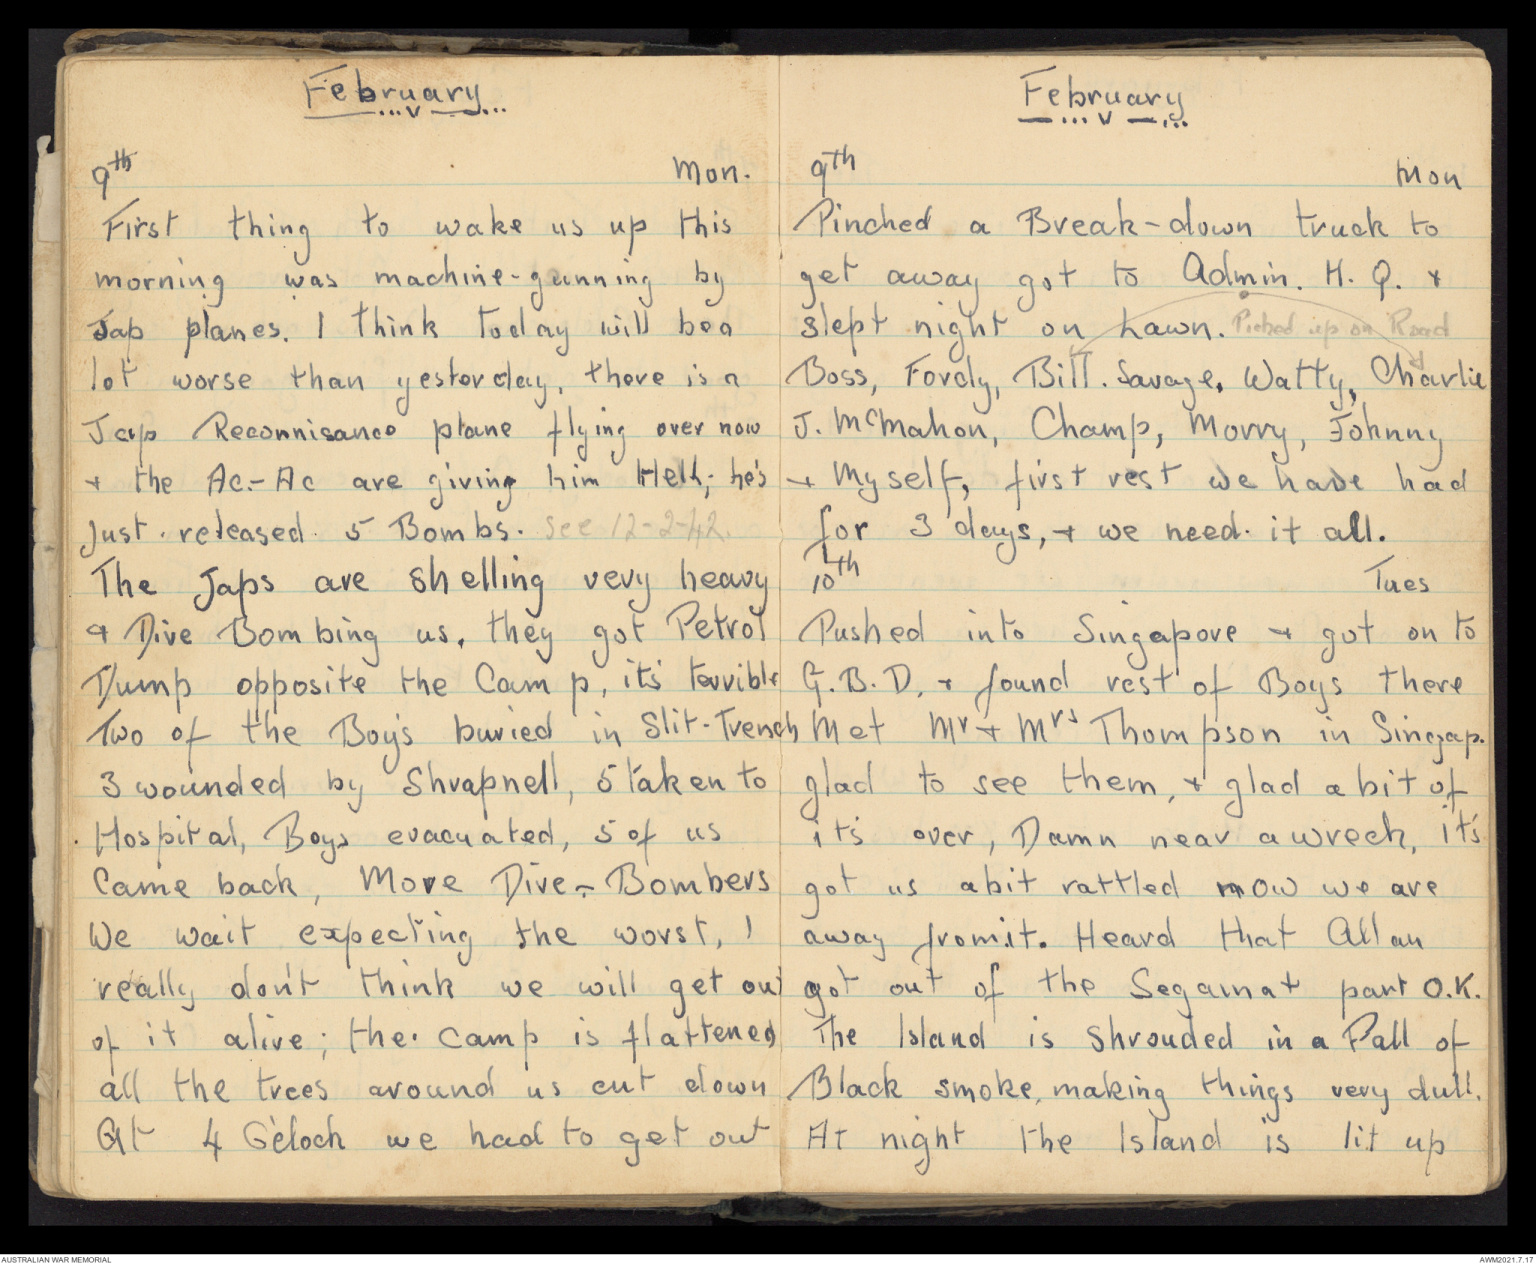 February
9th Mon.
First thing to wake us up this
morning was machine-gunning by
Jap planes. I think today will be a
lot worse than yesterday, there is a
Jap Reconnisance plane flying over now
+ the Ac-Ac are giving him Hell; he's
just released 5 Bombs. see 12-2-42.
The Japs are shelling very heavy
& Dive Bombing us, they got Petrol
Dump opposite the Camp, it's terrible
Two of the Boys buried in Slit-Trench
3 wounded by Shrapnell, 5 taken to
Hospital, Boys evacuated, 5 of us
Came back, More Dive-Bombers
We wait expecting the worst, I
really don't think we will get out
of it alive; the camp is flattened
all the trees around us cut down
At 4 O'clock we had to get out
February
9th Mon
Pinched a Break-down truck to
get away got to Admin. H.Q. +
slept night on Lawn. Picked up on Road
Boss, Fordy, Bill. Savage, Watty, Charlie
J. McMahon, Champ, Morry, Johnny
+ Myself, first rest we have had
for 3 days, + we need it all.
10th Tues
Pushed into Singapore + got on to
G.B.D. + found rest of Boys there
Met Mr + Mrs Thompson in Singap.
glad to see them, + glad a bit of
it's over, Damn near a wreck, it's
got us a bit rattled now we are
away from it. Heard that Allan
got out of the Segamat part O.K.
The Island is Shrouded in a Pall of
Black smoke, making things very dull.
At night the Island is lit up
AUSTRALIAN WAR MEMORIAL
AWM2021.7.17